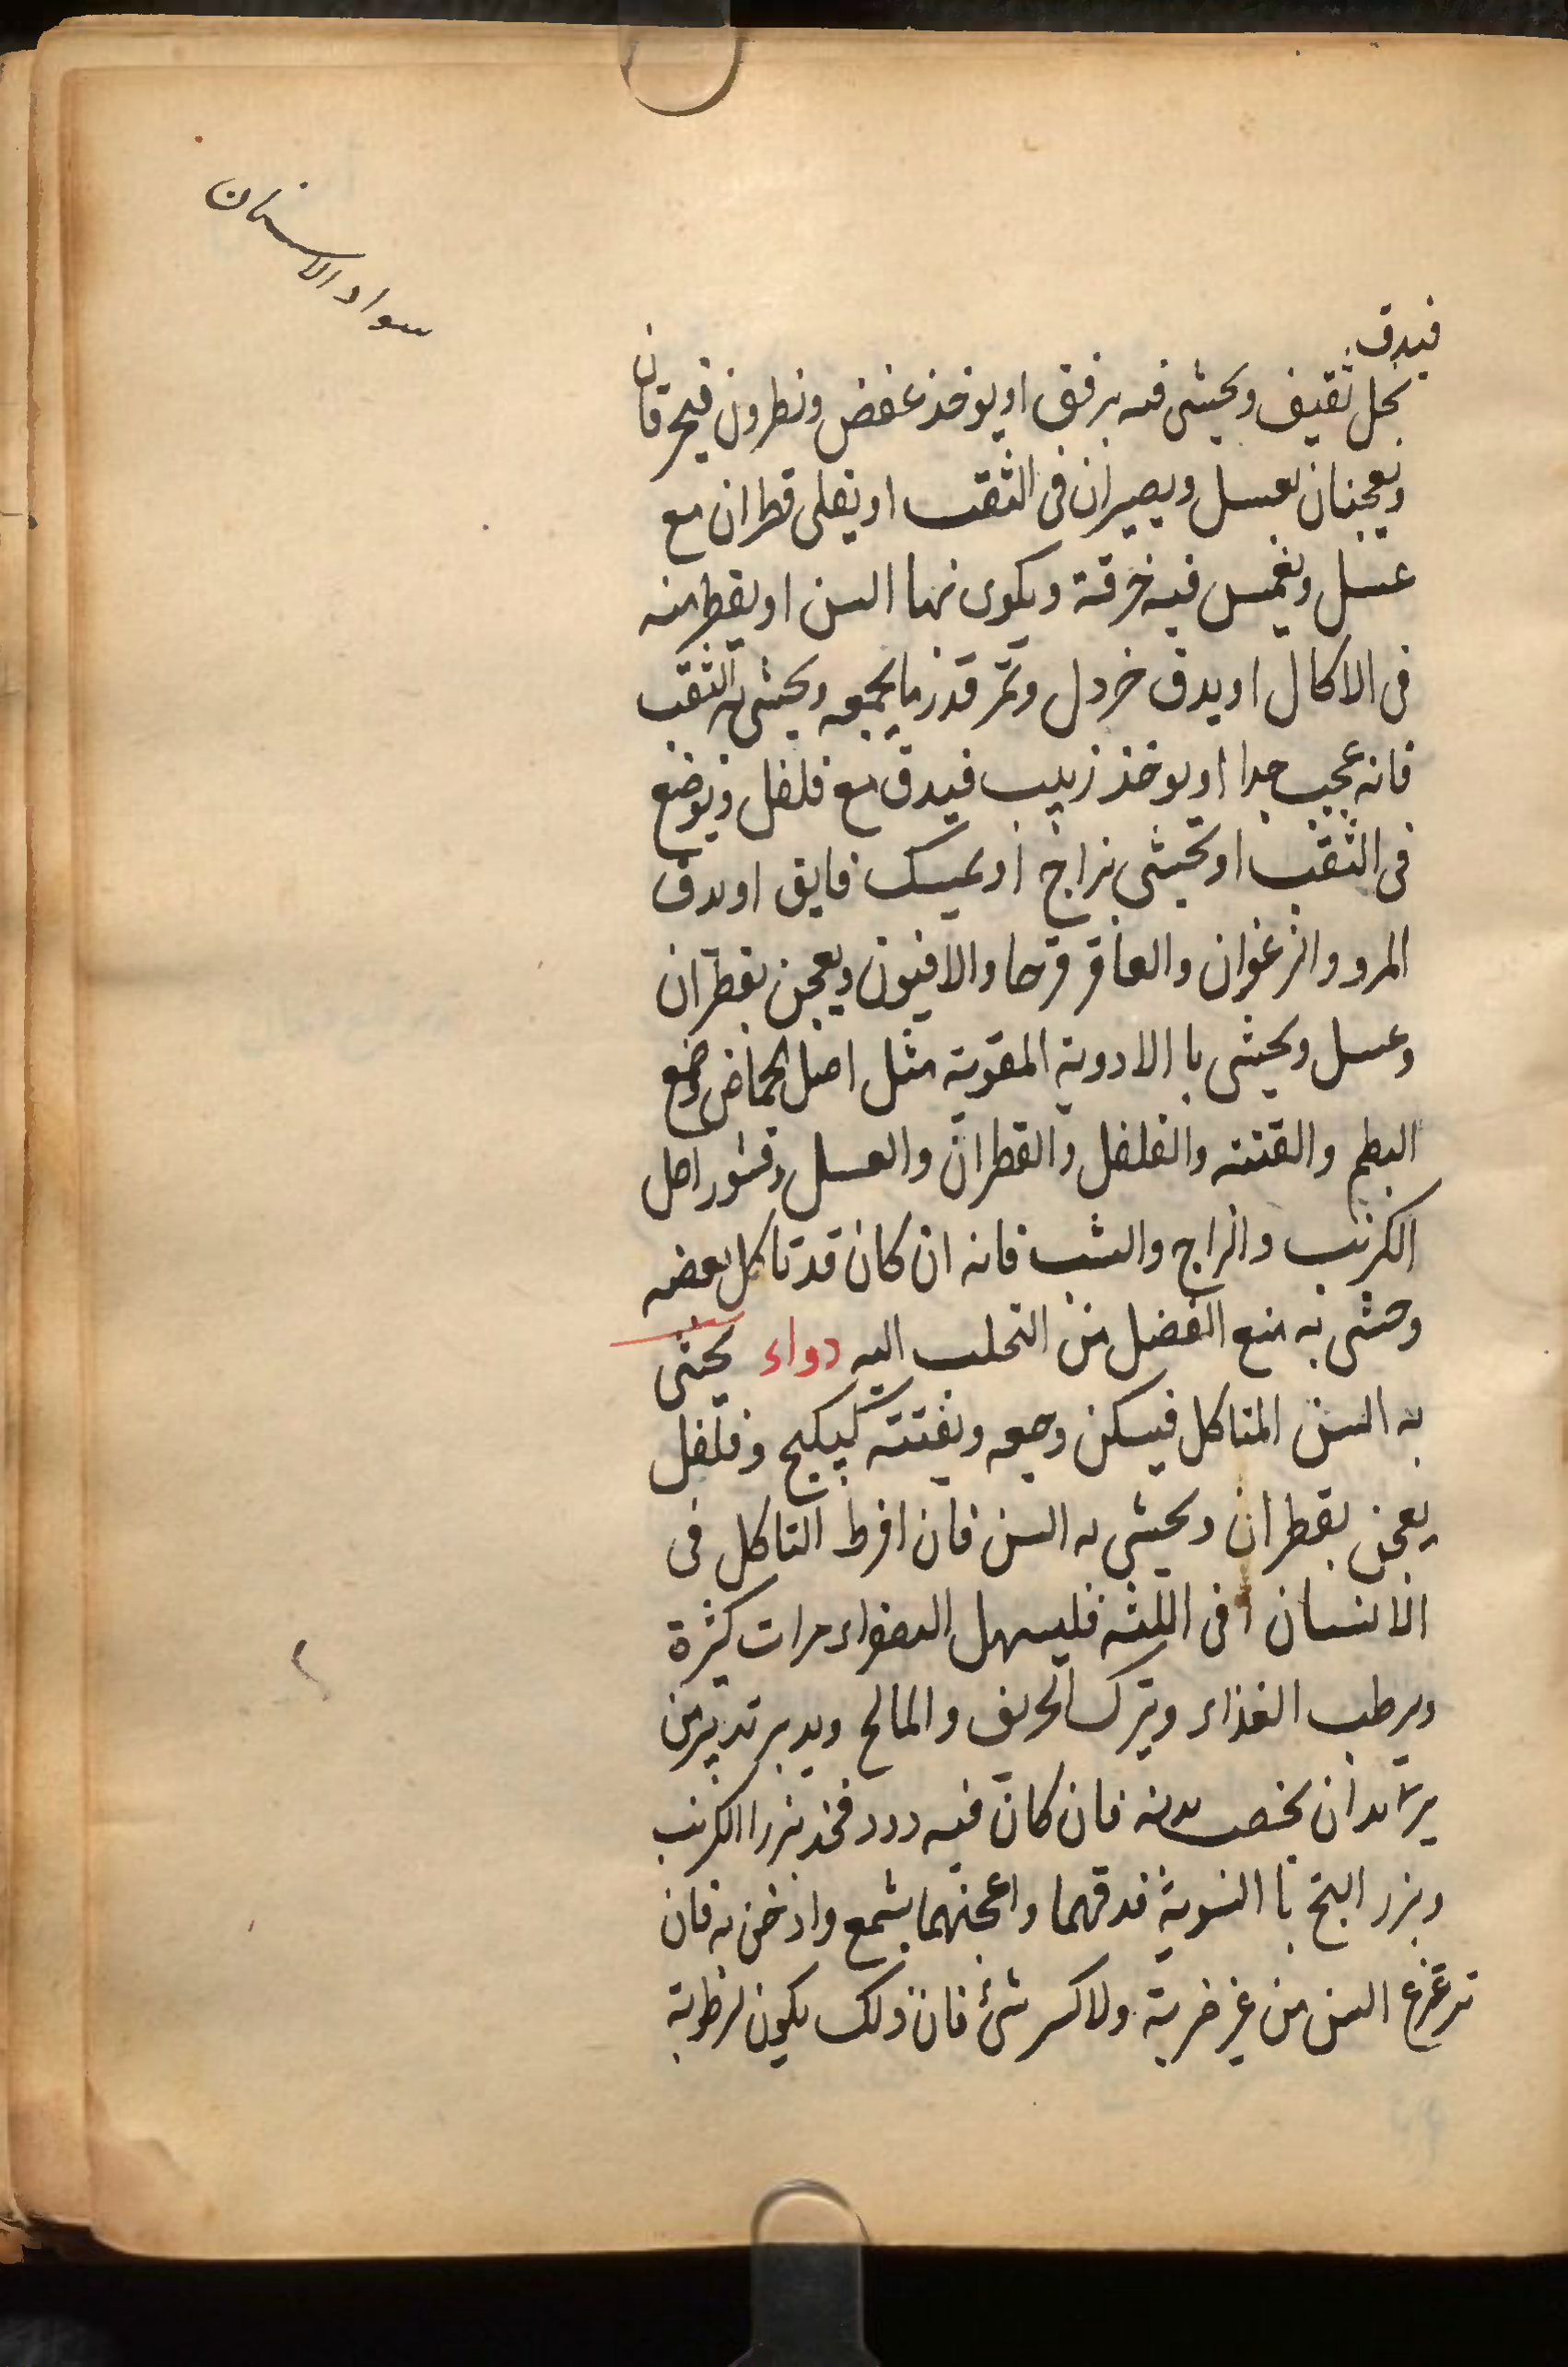 سواد الاسنان
فيدق
بخل ثقيف ويحشى فيه برفق او يوخذ عفص ونطرون فيحرقان
ويعجنان بعسل ويصيران فى الثقب او يغلى قطران مع
عسل ويغمس فيه خرقة ويكوى بها السن او يقطر منه
فى الاكال او يدق خردل وتمر قدر ما يجمعه ويحشى به الثقب
فانه عجيب جدا او يوخذ زبيب فيدق مع فلفل ويوضع
فى الثقب او يحشى بزاج او بمسك فايق او يدق
المر والزعفران والعاقر قرحا والافيون ويعجن بقطران
وعسل ويحشى با الادوية المقوية مثل اصل الحماض وصمغ
البطم والقنته والفلفل والقطران والعسل وقشور اصل
الكرنب والزاج والشب فانه ان كان قد تاكل بعضه
وحشى به منع الفضل من التحلب اليه دواء يحشى
به السن المتاكل فيسكن وجعه ويفتته كبيكج وفلفل
يعجن بقطران ويحشى به السن فان افرط التاكل فى
الانسان او فى اللثه فليسهل الصفراء مرات كثيرة
ويرطب الغذاء ويترك الحريف والمالح ويدبر تدبير من
يريد ان يخصب بدنه فان كان فيه دود فخذ بزر الكرنب
وبزر البنج با السوية فدقهما واعجنهما بشمع وادخن به فان
تزعزع السن من غير ضربة ولا كسر شئ فان ذلك يكون لرطوبة